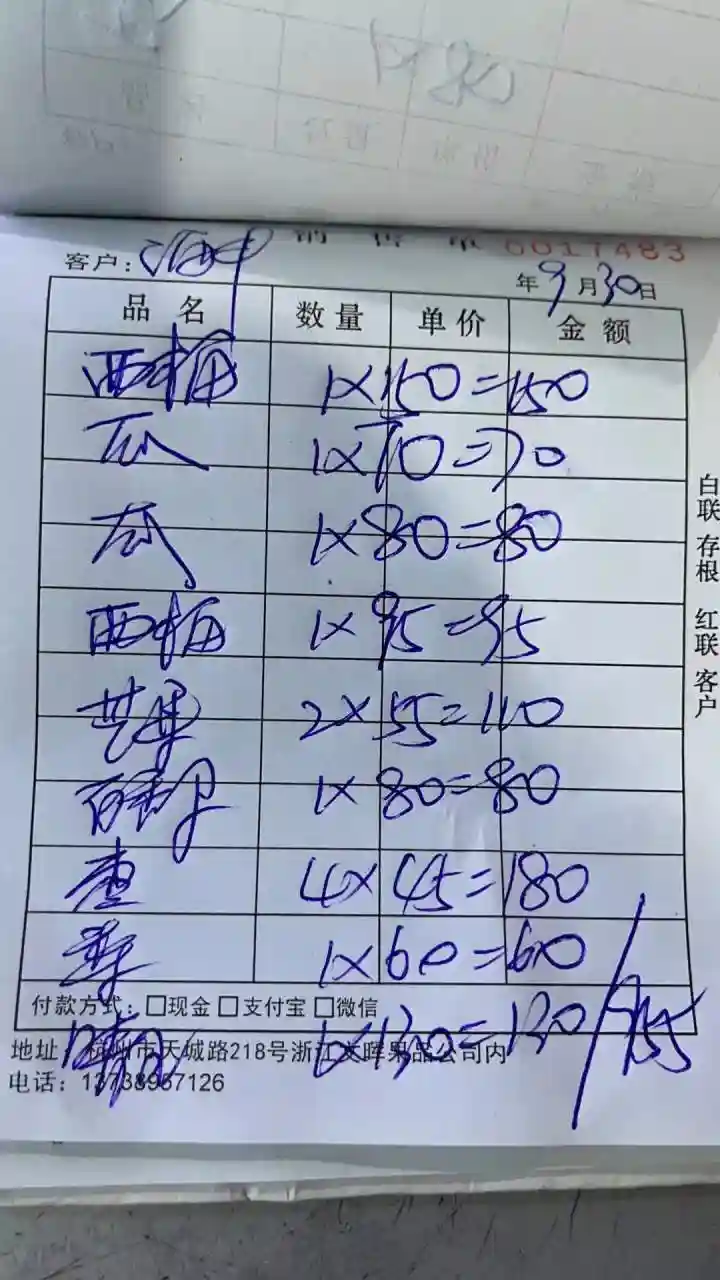 0017483
客户:
年9月30日
品名 数量 单价 金额
西梅 1×150=150
瓜 1×70=70
瓜 1×80=80
西梅 1×95=95
芒果 2×55=110
1×80=80
4×45=180
1×60=60
付款方式: □现金 □支付宝 □微信
1×130=130 / 955
地址: 杭州市天城路218号浙江大晖果品公司内
电话: 13738967126
白联 存根 红联 客户